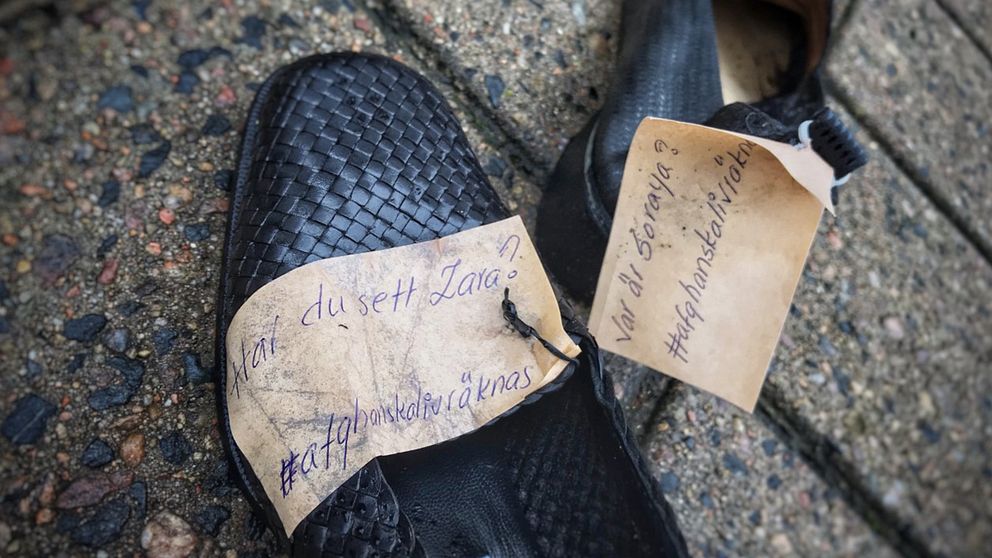 Har du sett Zara?
#afghanskalivräknas
Var är Soraya?
#afghanskalivräknas